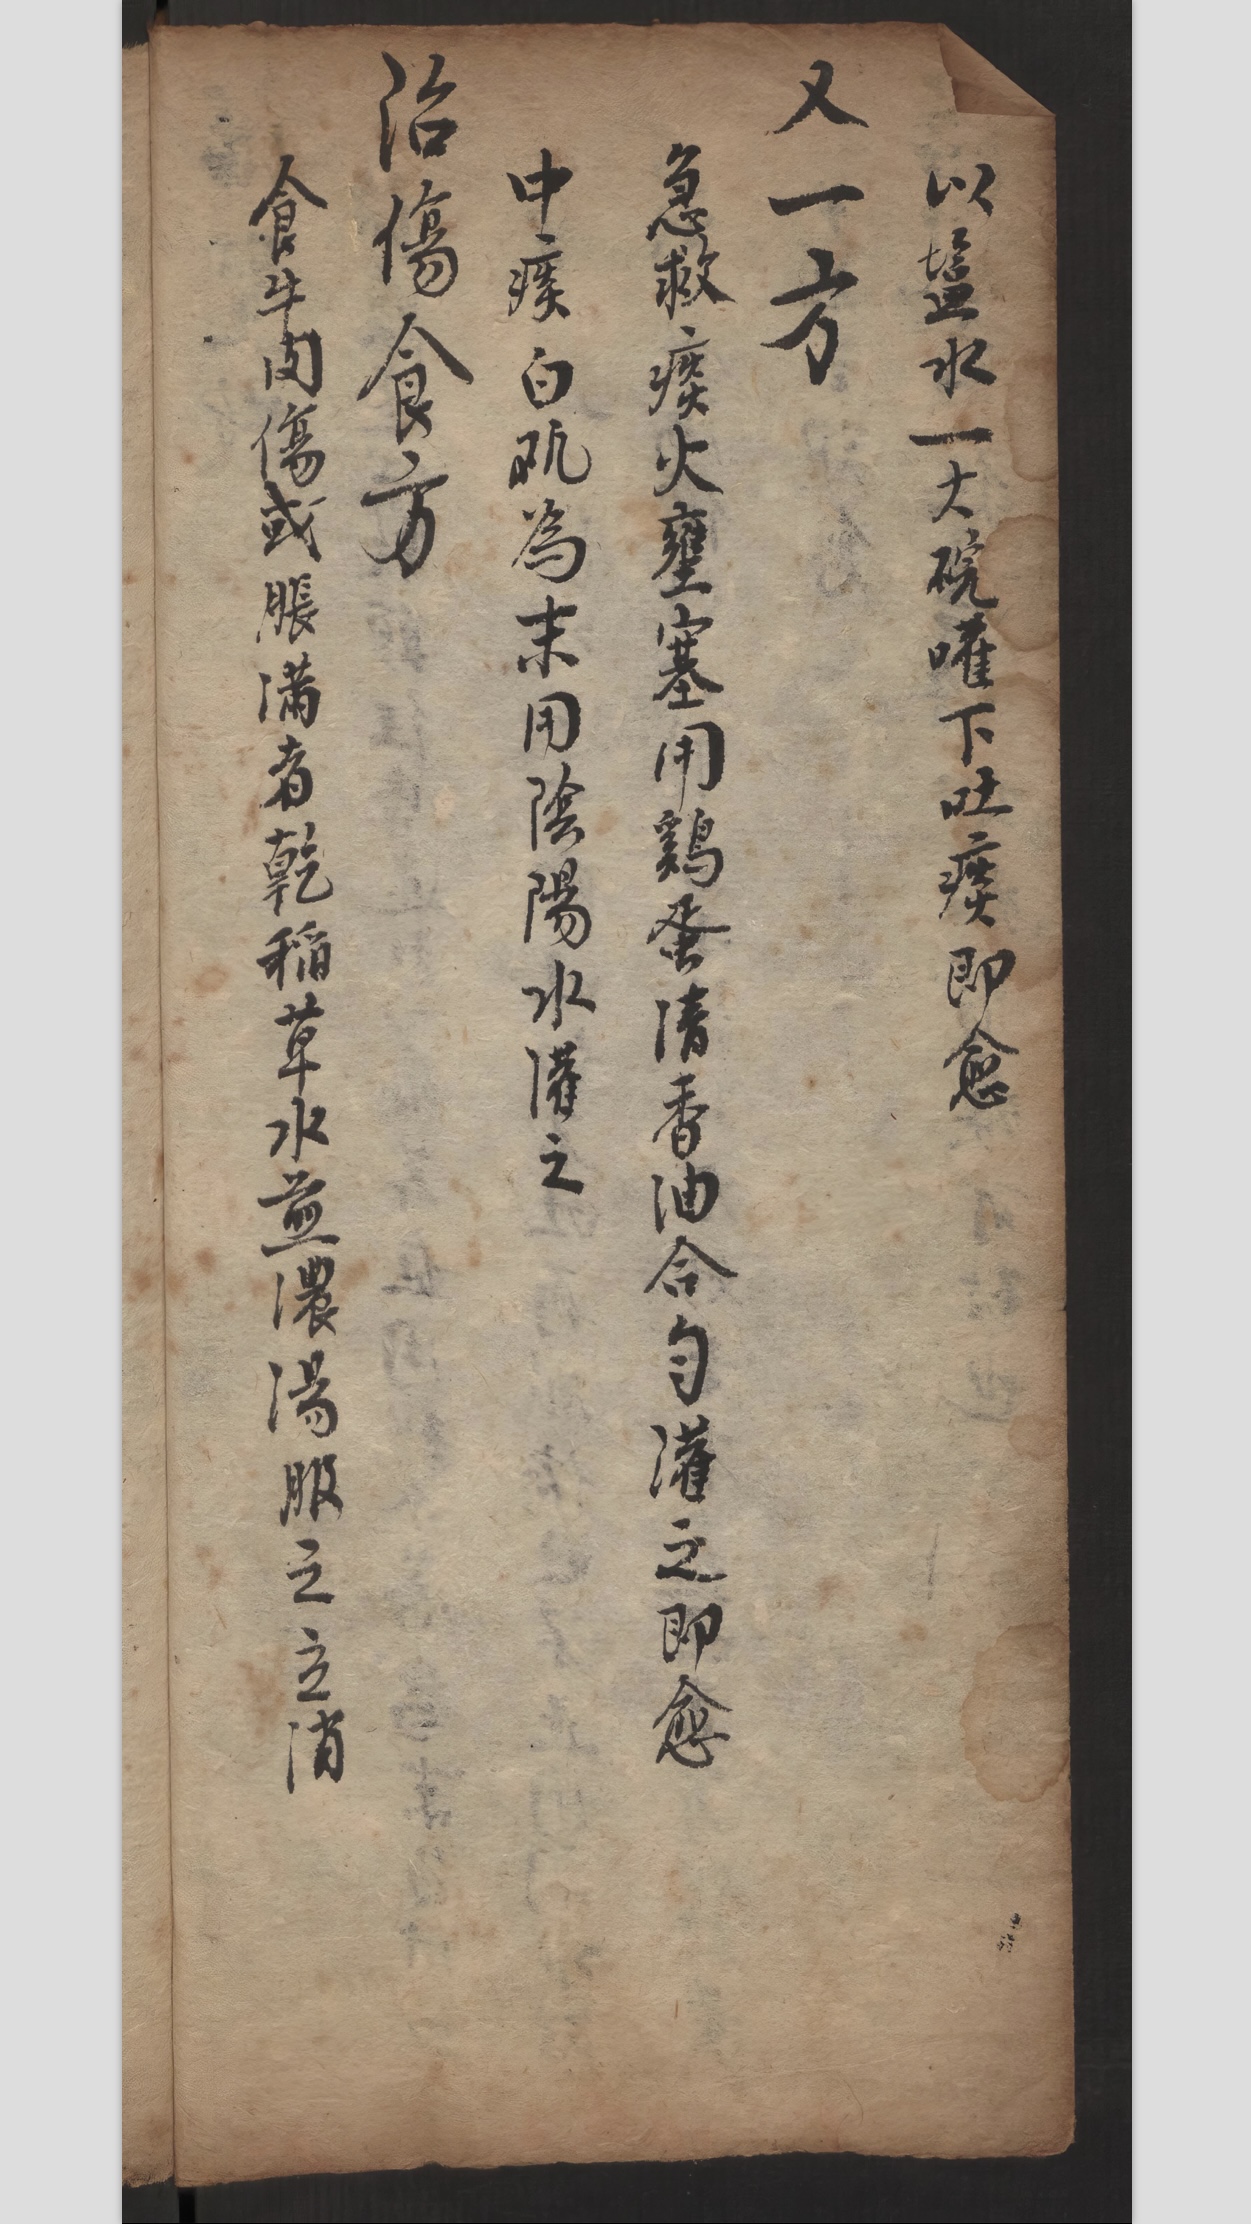 以塩水一大碗嚾下吐痰即愈
又一方
急救痰火壅塞用鷄蛋清香油合匀灌之即愈
中痰白矾為末用陰陽水灌之
治傷食方
食牛肉傷或脹满者乾稲草水煎濃湯服之立消